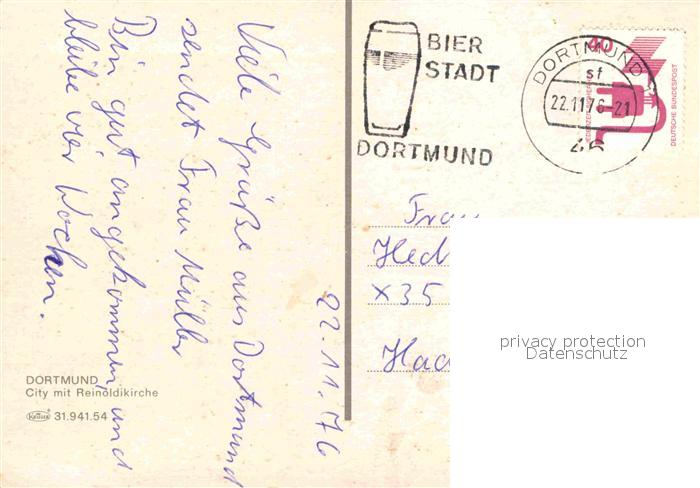 Viele Grüße aus Dortmund
sendet Frau Müller
Bin gut angekommen, und
bleibe vier Wochen.
22.11.76
DORTMUND
City mit Reinoldikirche
Krüger 31.941.54
BIER
STADT
DORTMUND
DORTMUND
sf
22.11.76-21
46
40
DEUTSCHE BUNDESPOST
Frau
X35
privacy protection
Datenschutz